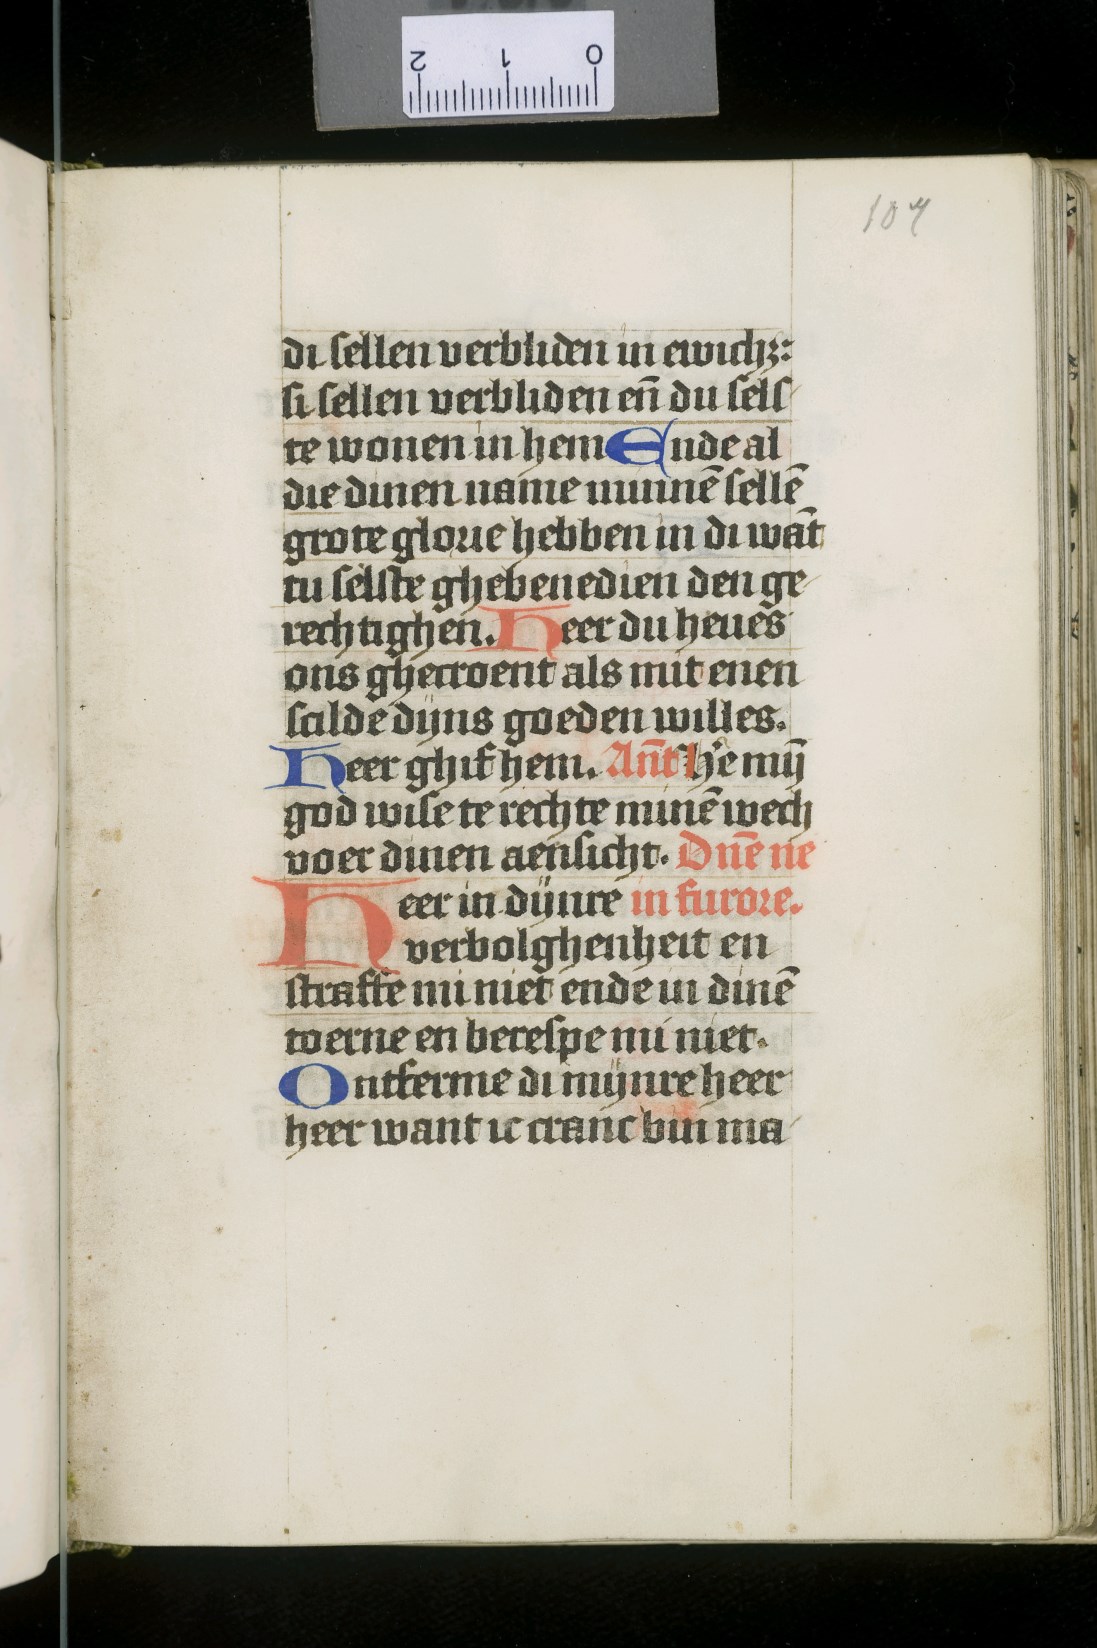 104
di sellen verbliden in ewichʒ:
si sellen verbliden en̄ du sels
te wonen in hem Ende al
die dinen name minnē sellē
grote glorie hebben in di wāt
tu selste ghebenedien den ge
rechtighen. Heer du heues
ons ghecroent als mit enen
scilde dijns goeden willes.
Heer ghif hem. An̄t h'e mij̄
god wise te rechte minē wech
voer dinen aensicht. Dn̄e ne
Heer in dijnre in furore.
verbolghenheit en
straffe mi niet ende in dinē
toerne en berespe mi niet.
Ontferme di mijnre heer
heer want ic cranc bin ma